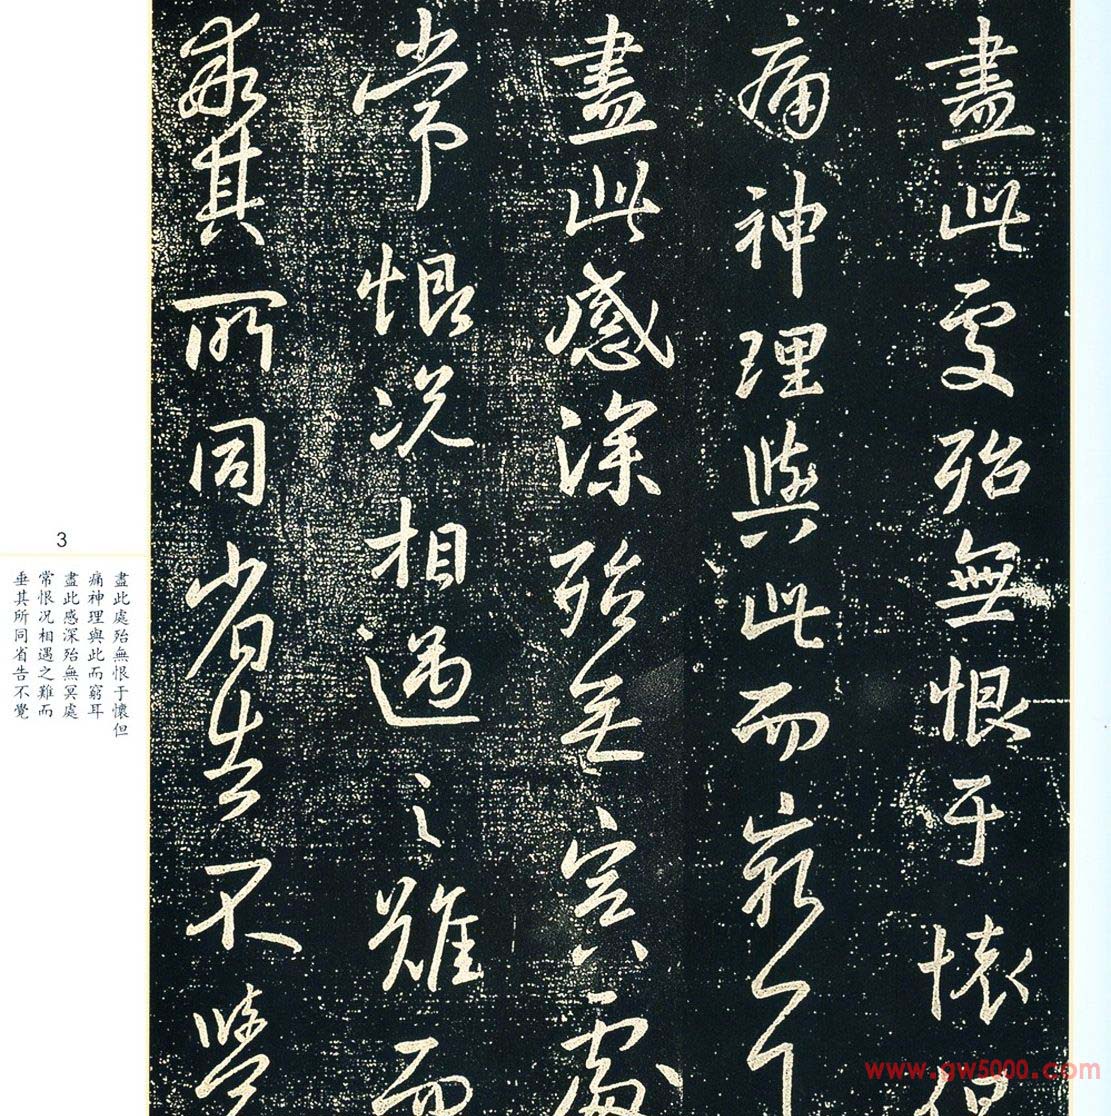 盡此處殆無恨于懷但
痛神理與此而窮耳
盡此感深殆無冥處
常恨况相遇之難而
乖其所同省告不覺
3
盡此處殆無恨于懷但
痛神理與此而窮耳
盡此感深殆無冥處
常恨况相遇之難而
垂其所同省告不覺
www.gw5000.com